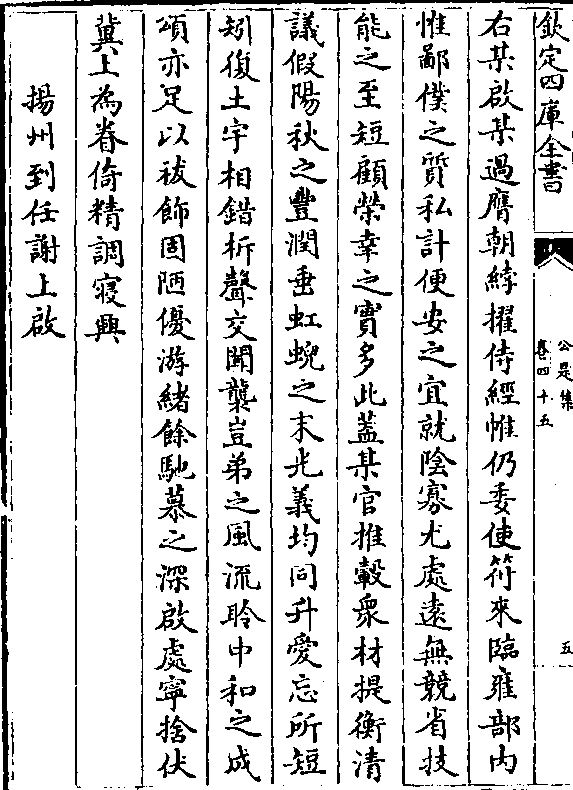 欽定四庫全書
公是集
卷四十五
五
右某啟某過膺朝綍擢侍經帷仍委使符來臨雍部内
惟鄙僕之質私計便安之宜就陰寡尤處遠無競省技
能之至短顧榮幸之實多此蓋某官推轂衆材提衡清
議假陽秋之豐潤垂虹蜺之末光義均同升愛忘所短
矧復土宇相錯柝聲交聞襲豈弟之風流聆中和之成
頌亦足以祓飾固陋優游緒餘馳慕之深啟處寧捨伏
冀上為眷倚精調寢興
揚州到任謝上啟